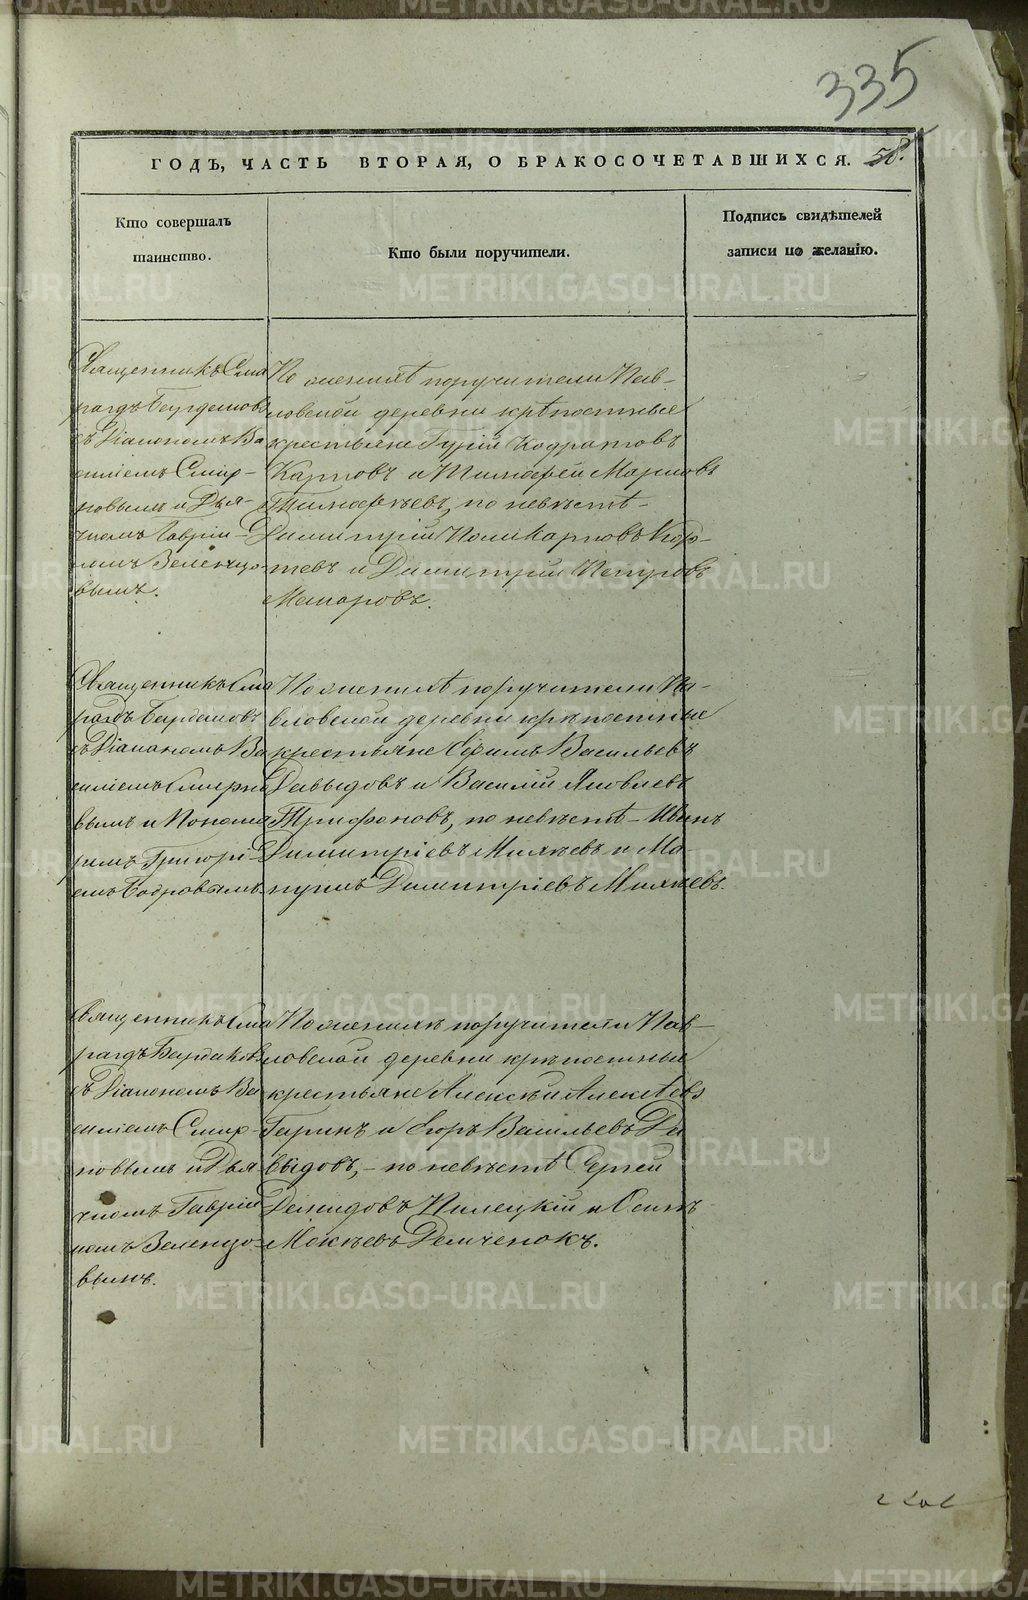 335
ГОДЪ, ЧАСТЬ ВТОРАЯ, О БРАКОСОЧЕТАВШИХСЯ. 58.
Кто совершалъ
таинство.
Кто были поручители.
Подпись свидѣтелей
записи по желанію.
Священникъ Сма
рагдъ
съ Діакономъ Ва
силіемъ Смир-
новымъ и Дья-
чкомъ Гавріи-
ломъ Зеленцо-
вымъ.
По женихѣ поручители Пав-
ловской деревни крѣпостные
крестьяне Гурій Кодратовъ
Карповъ и Тимофей Марковъ
Тимофѣевъ, по невѣстѣ -
Димитрій Поликарповъ
и Димитрій Петровъ
Макаровъ.
Священникъ Сма
рагдъ
съ Діакономъ Ва
силіемъ Смирно
вымъ и Понома
ремъ Григорі-
емъ Бобровымъ
По женихѣ поручители Па-
вловской деревни крѣпостные
крестьяне Ефимъ Васильевъ
Давыдовъ и Василій Яковлевъ
Трифоновъ, по невѣстѣ - Иванъ
Димитріевъ и Ма-
Димитріевъ
Священникъ Сма
рагдъ
съ Діакономъ Ва
силіемъ Смир-
новымъ и Дья
чкомъ Гавріи
ломъ Зеленцо-
вымъ.
По женихѣ поручители Пав-
ловской деревни крѣпостные
крестьяне Алексѣй Алексѣевъ
Гаринъ и Егоръ Васильевъ Да
выдовъ, - по невѣстѣ Сергей
Демидовъ Пилецкій и Осипъ
Мокѣевъ Демченокъ.
METRIKI.GASO-URAL.RU